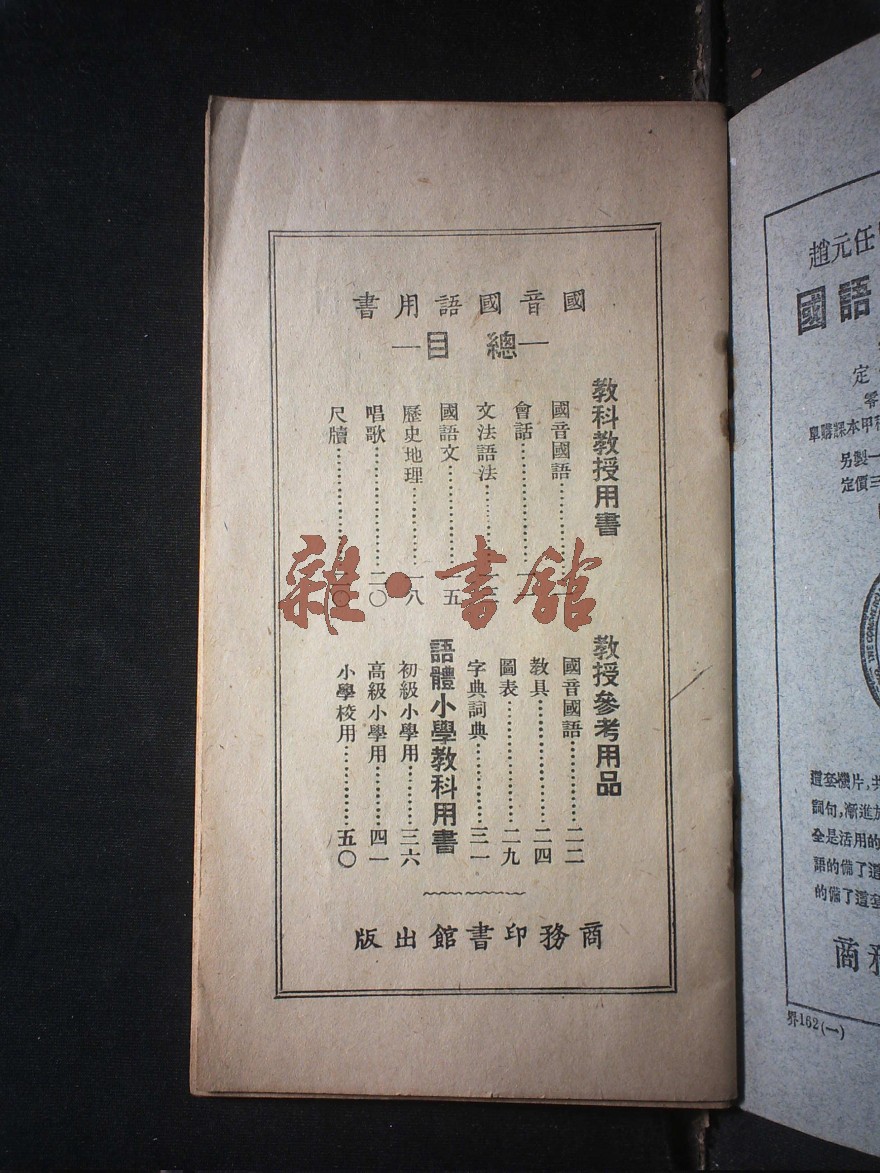 國音國語用書
—總目—
教科教授用書
國音國語
會話
文法語法
國語文
歷史地理……一八
唱歌……二〇
尺牘
教授參考用品
國音國語……二二
教具……二四
圖表……二九
字典詞典……三一
語體小學教科用書
初級小學用……三六
高級小學用……四一
小學校用……五〇
商務印書館出版
雜·書館
趙元任
國語
定
零
單購課本甲種
另製一
定價三
這套機片,共
詞句,漸進於
全是活用的
語的備了這
的備了這套
商務
界162(一)